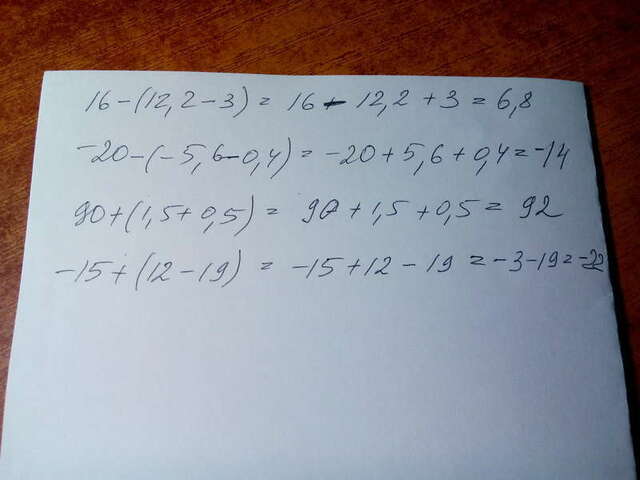 16-(12,2-3)=16-12,2+3=6,8
-20-(-5,6-0,4)=-20+5,6+0,4=-14
90+(1,5+0,5)=90+1,5+0,5=92
-15+(12-19)=-15+12-19=-3-19=-22